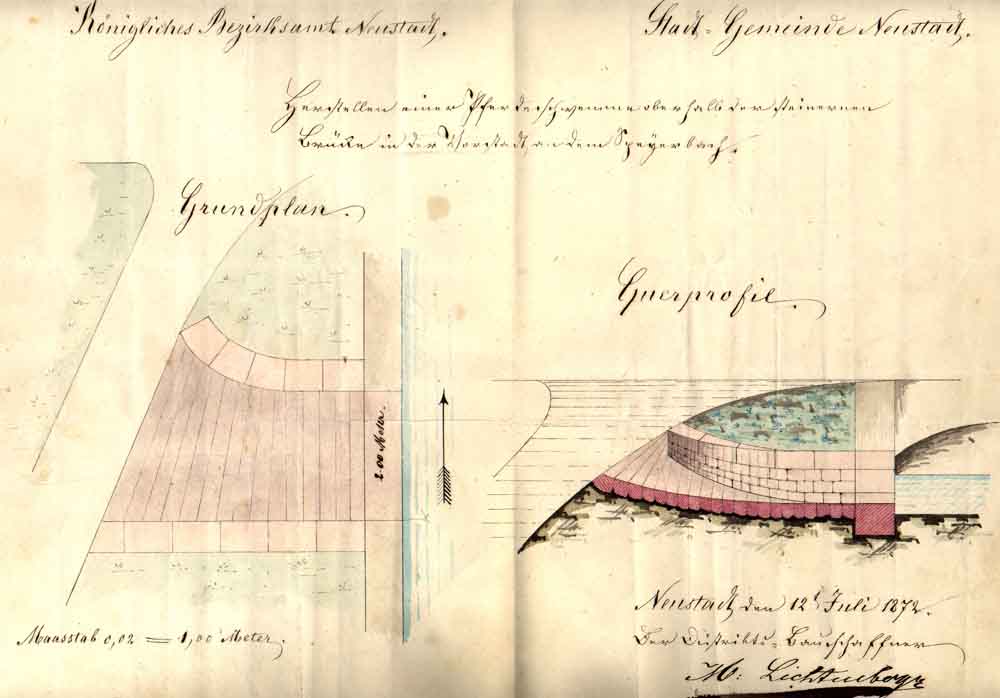 Königliches Bezirksamt Neustadt.
Stadt-Gemeinde Neustadt.
Herstellen einer Pferdeschwemme oberhalb der steinernen
Brücke in der Vorstadt, an dem Speyerbach.
Grundplan.
Querprofil.
2.00 Meter.
Maasstab 0,02 = 1,00 Meter.
Neustadt, den 12t Juli 1872.
Der Distrikts-Bauschaffner
M: Lichtenberger